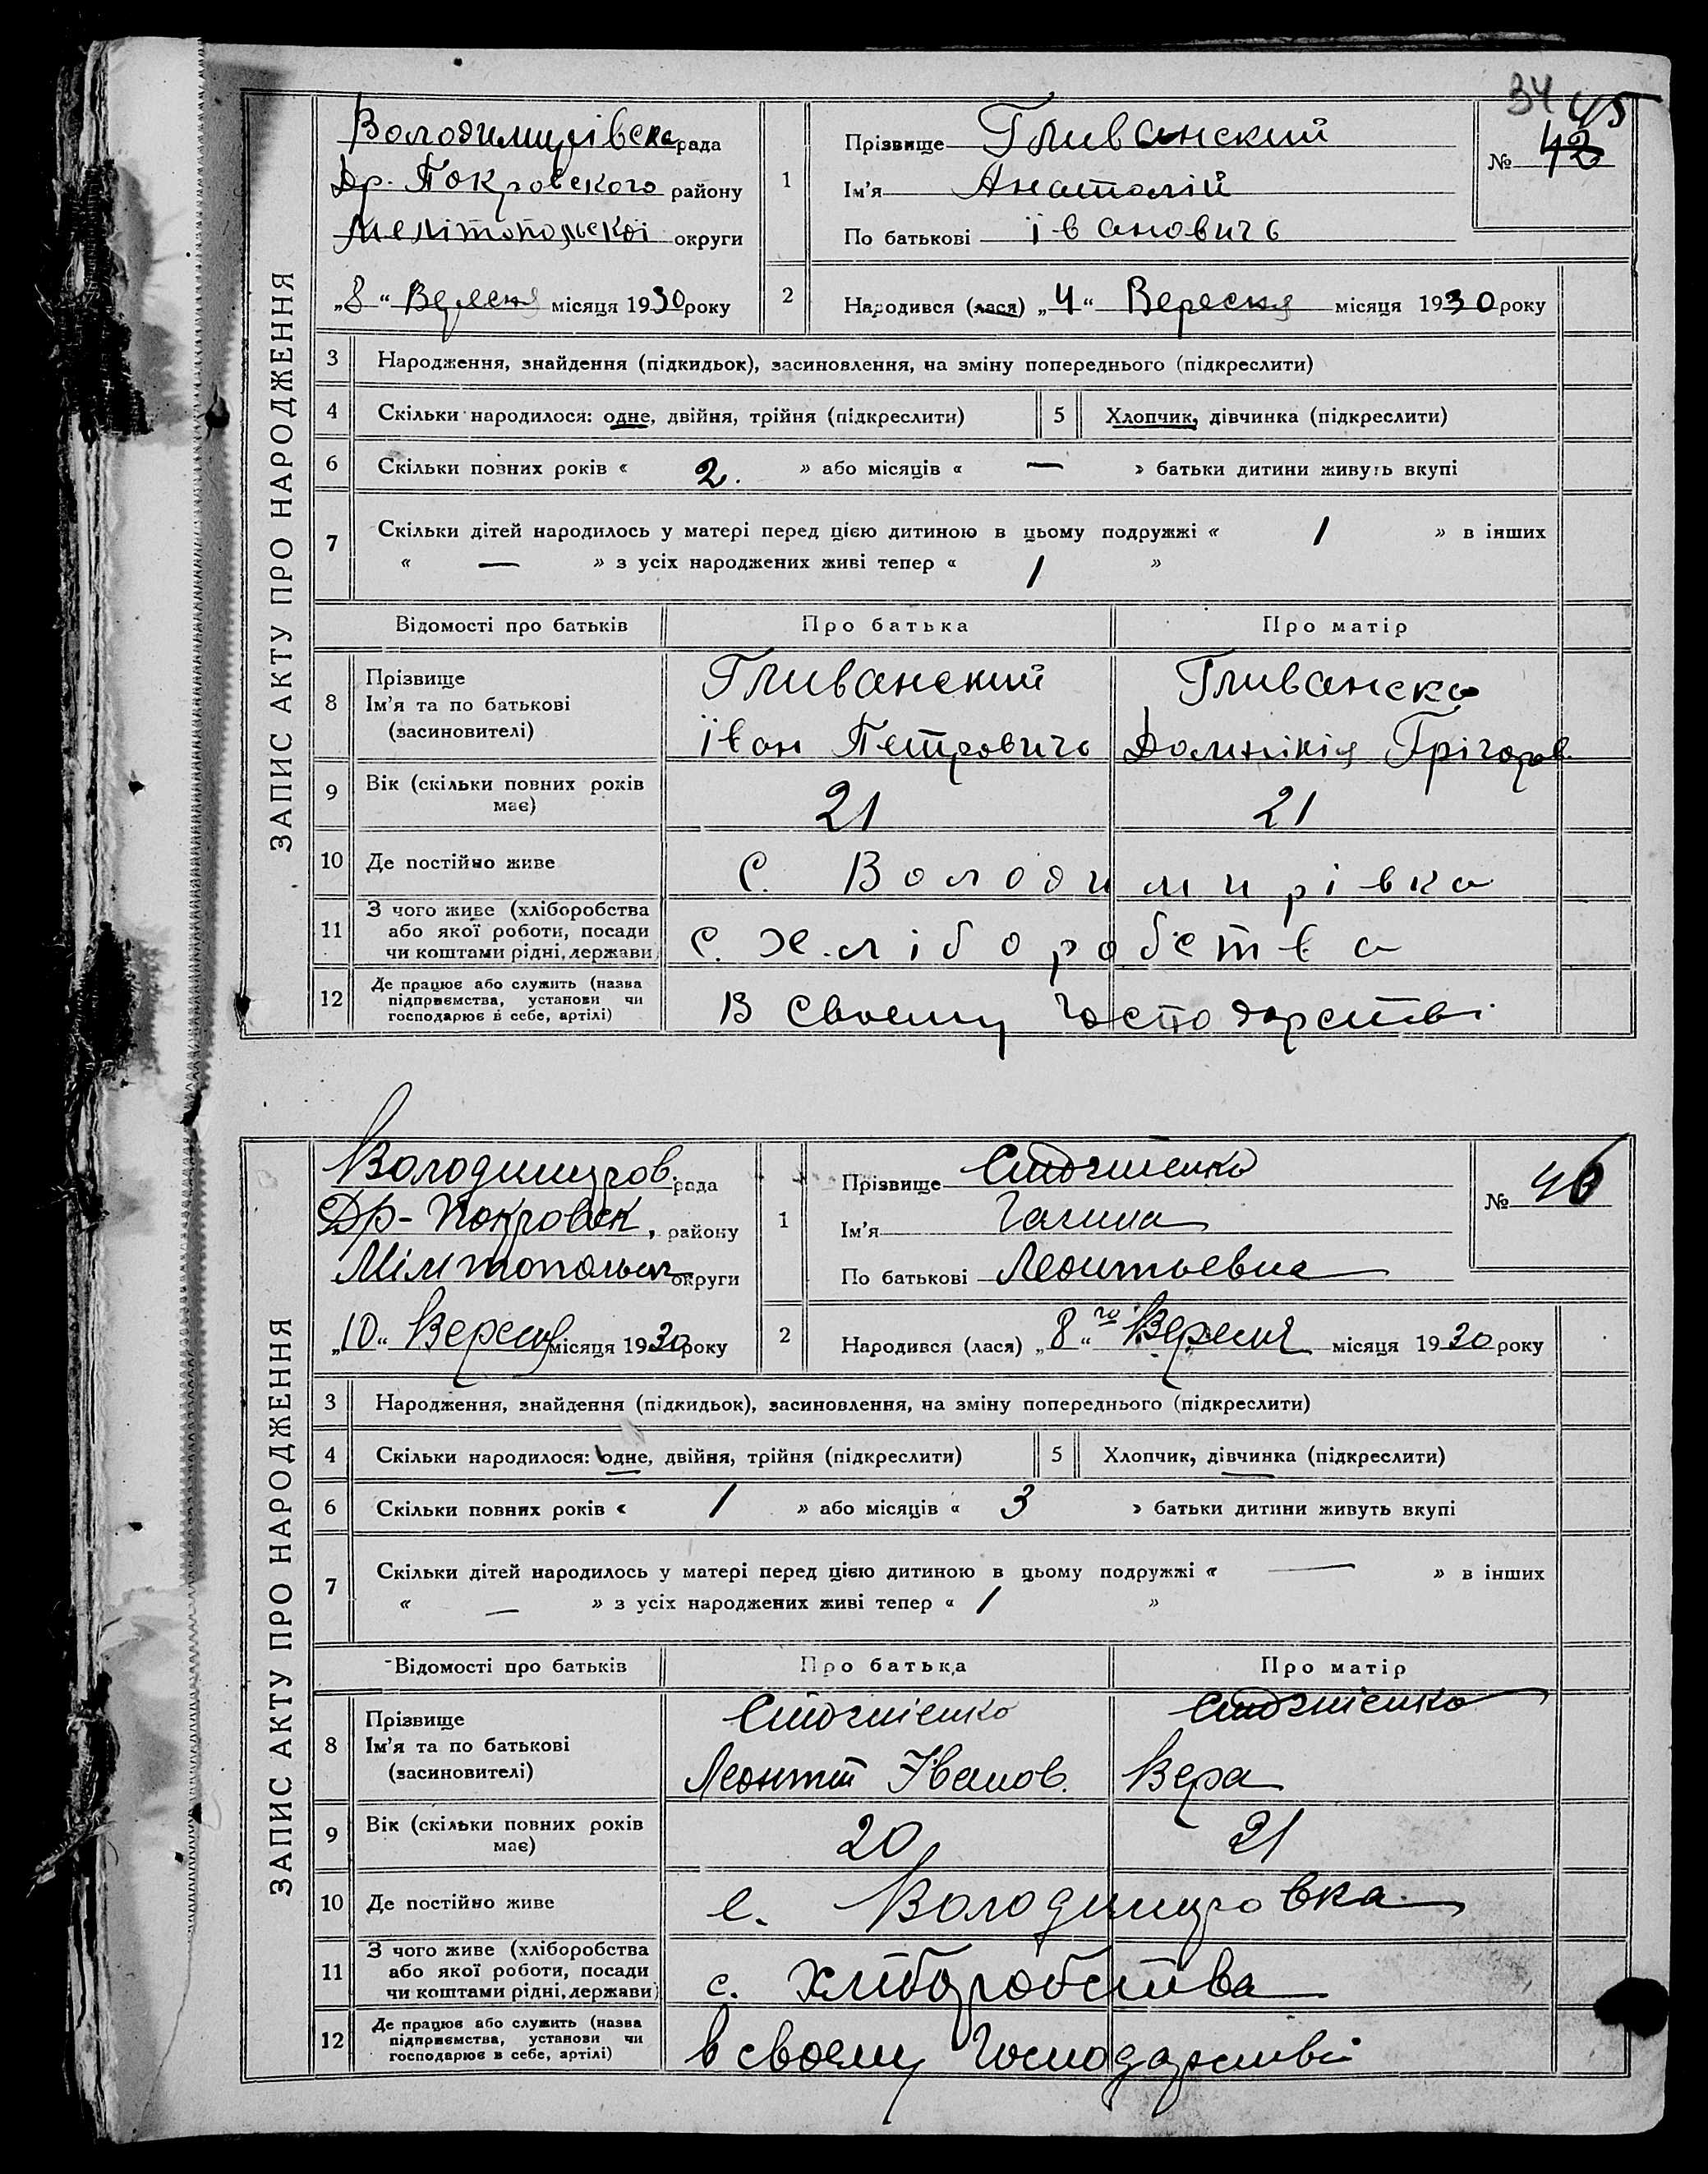 34 45
Володимирівска рада
Др. Покровского району
Мелітопольскої округи
„8“ Вересня місяця 1930 року
1 Прізвище Гливанский
Ім'я Анатолій
По батькові Івановичь
№ 42
2 Народився (лася) „4“ Вересня місяця 1930 року
ЗАПИС АКТУ ПРО НАРОДЖЕННЯ
3 Народження, знайдення (підкидьок), засиновлення, на зміну попереднього (підкреслити)
4 Скільки народилося: одне, двійня, трійня (підкреслити) 5 Хлопчик, дівчинка (підкреслити)
6 Скільки повних років « 2. » або місяців « — » батьки дитини живуть вкупі
7 Скільки дітей народилось у матері перед цією дитиною в цьому подружжі « 1 » в інших
« — » з усіх народжених живі тепер « 1 »
Відомості про батьків Про батька Про матір
8 Прізвище Гливанский Гливанска
Ім'я та по батькові
(засновителі) Іван Петровичь Домнікія Грігоров.
9 Вік (скільки повних років має) 21 21
10 Де постійно живе С. Володимирівка
11 З чого живе (хліборобства
або якої роботи, посади
чи коштами рідні, держави) С. Хліборобства
12 Де працює або служить (назва
підприємства, установи чи
господарює в себе, артілі) В своему господарстві
Володимиров. рада
Др-Покровск, району
Мілитопольск округи
„10“ Вересня місяця 1930 року
1 Прізвище
Ім'я Галина
По батькові Леонтьевна
№ 46
2 Народився (лася) „8го“ Вересня місяця 1930 року
ЗАПИС АКТУ ПРО НАРОДЖЕННЯ
3 Народження, знайдення (підкидьок), засиновлення, на зміну попереднього (підкреслити)
4 Скільки народилося: одне, двійня, трійня (підкреслити) 5 Хлопчик, дівчинка (підкреслити)
6 Скільки повних років « 1 » або місяців « 3 » батьки дитини живуть вкупі
7 Скільки дітей народилось у матері перед цією дитиною в цьому подружжі « — » в інших
« — » з усіх народжених живі тепер « 1 »
Відомості про батьків Про батька Про матір
8 Прізвище
Ім'я та по батькові
(засиновителі) Леонтій Іванов. Вера
9 Вік (скільки повних років має) 20 21
10 Де постійно живе с. Володимировка
11 З чого живе (хліборобства
або якої роботи, посади
чи коштами рідні, держави) с. Хліборобства
12 Де працює або служить (назва
підприємства, установи чи
господарює в себе, артілі) в своему господарстві